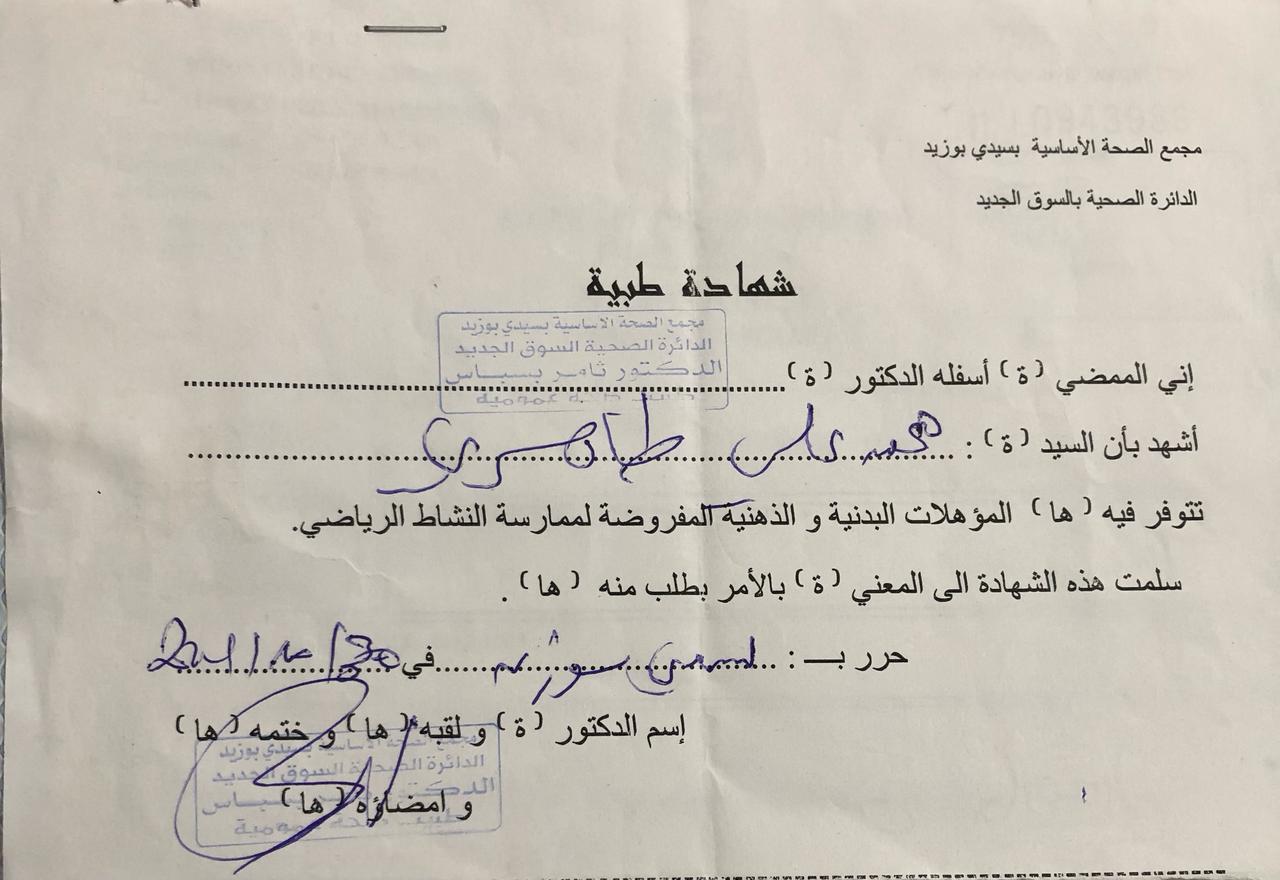 مجمع الصحة الأساسية بسيدي بوزيد
الدائرة الصحية بالسوق الجديد
شهادة طبية
مجمع الصحة الاساسية بسيدي بوزيد
الدائرة الصحية السوق الجديد
الدكتور ثامر بسباس
طبيب صحة عمومية
إني الممضي (ة) أسفله الدكتور (ة)
أشهد بأن السيد (ة) : محمد طاهري
تتوفر فيه (ها) المؤهلات البدنية و الذهنية المفروضة لممارسة النشاط الرياضي.
سلمت هذه الشهادة الى المعني (ة) بالأمر بطلب منه (ها) .
حرر بـ : في
إسم الدكتور (ة) و لقبه (ها) و ختمه (ها)
و امضاؤه (ها)
مجمع الصحة الاساسية بسيدي بوزيد
الدائرة الصحية السوق الجديد
الدكتور ثامر بسباس
طبيب صحة عمومية